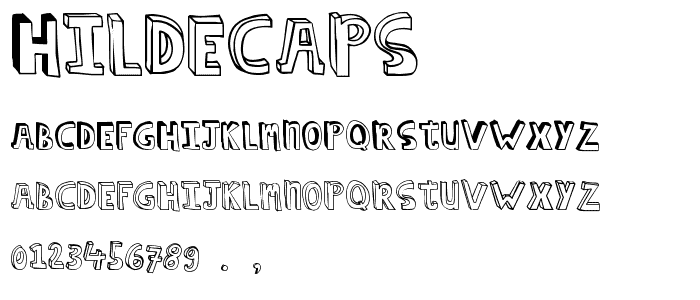 HILDECAPS
ABCDEFGHIJKLMNOPQRStUVWXYZ
ABCDEFGHIJKLMNOPQRStUVWXYZ
0123456789 . ,